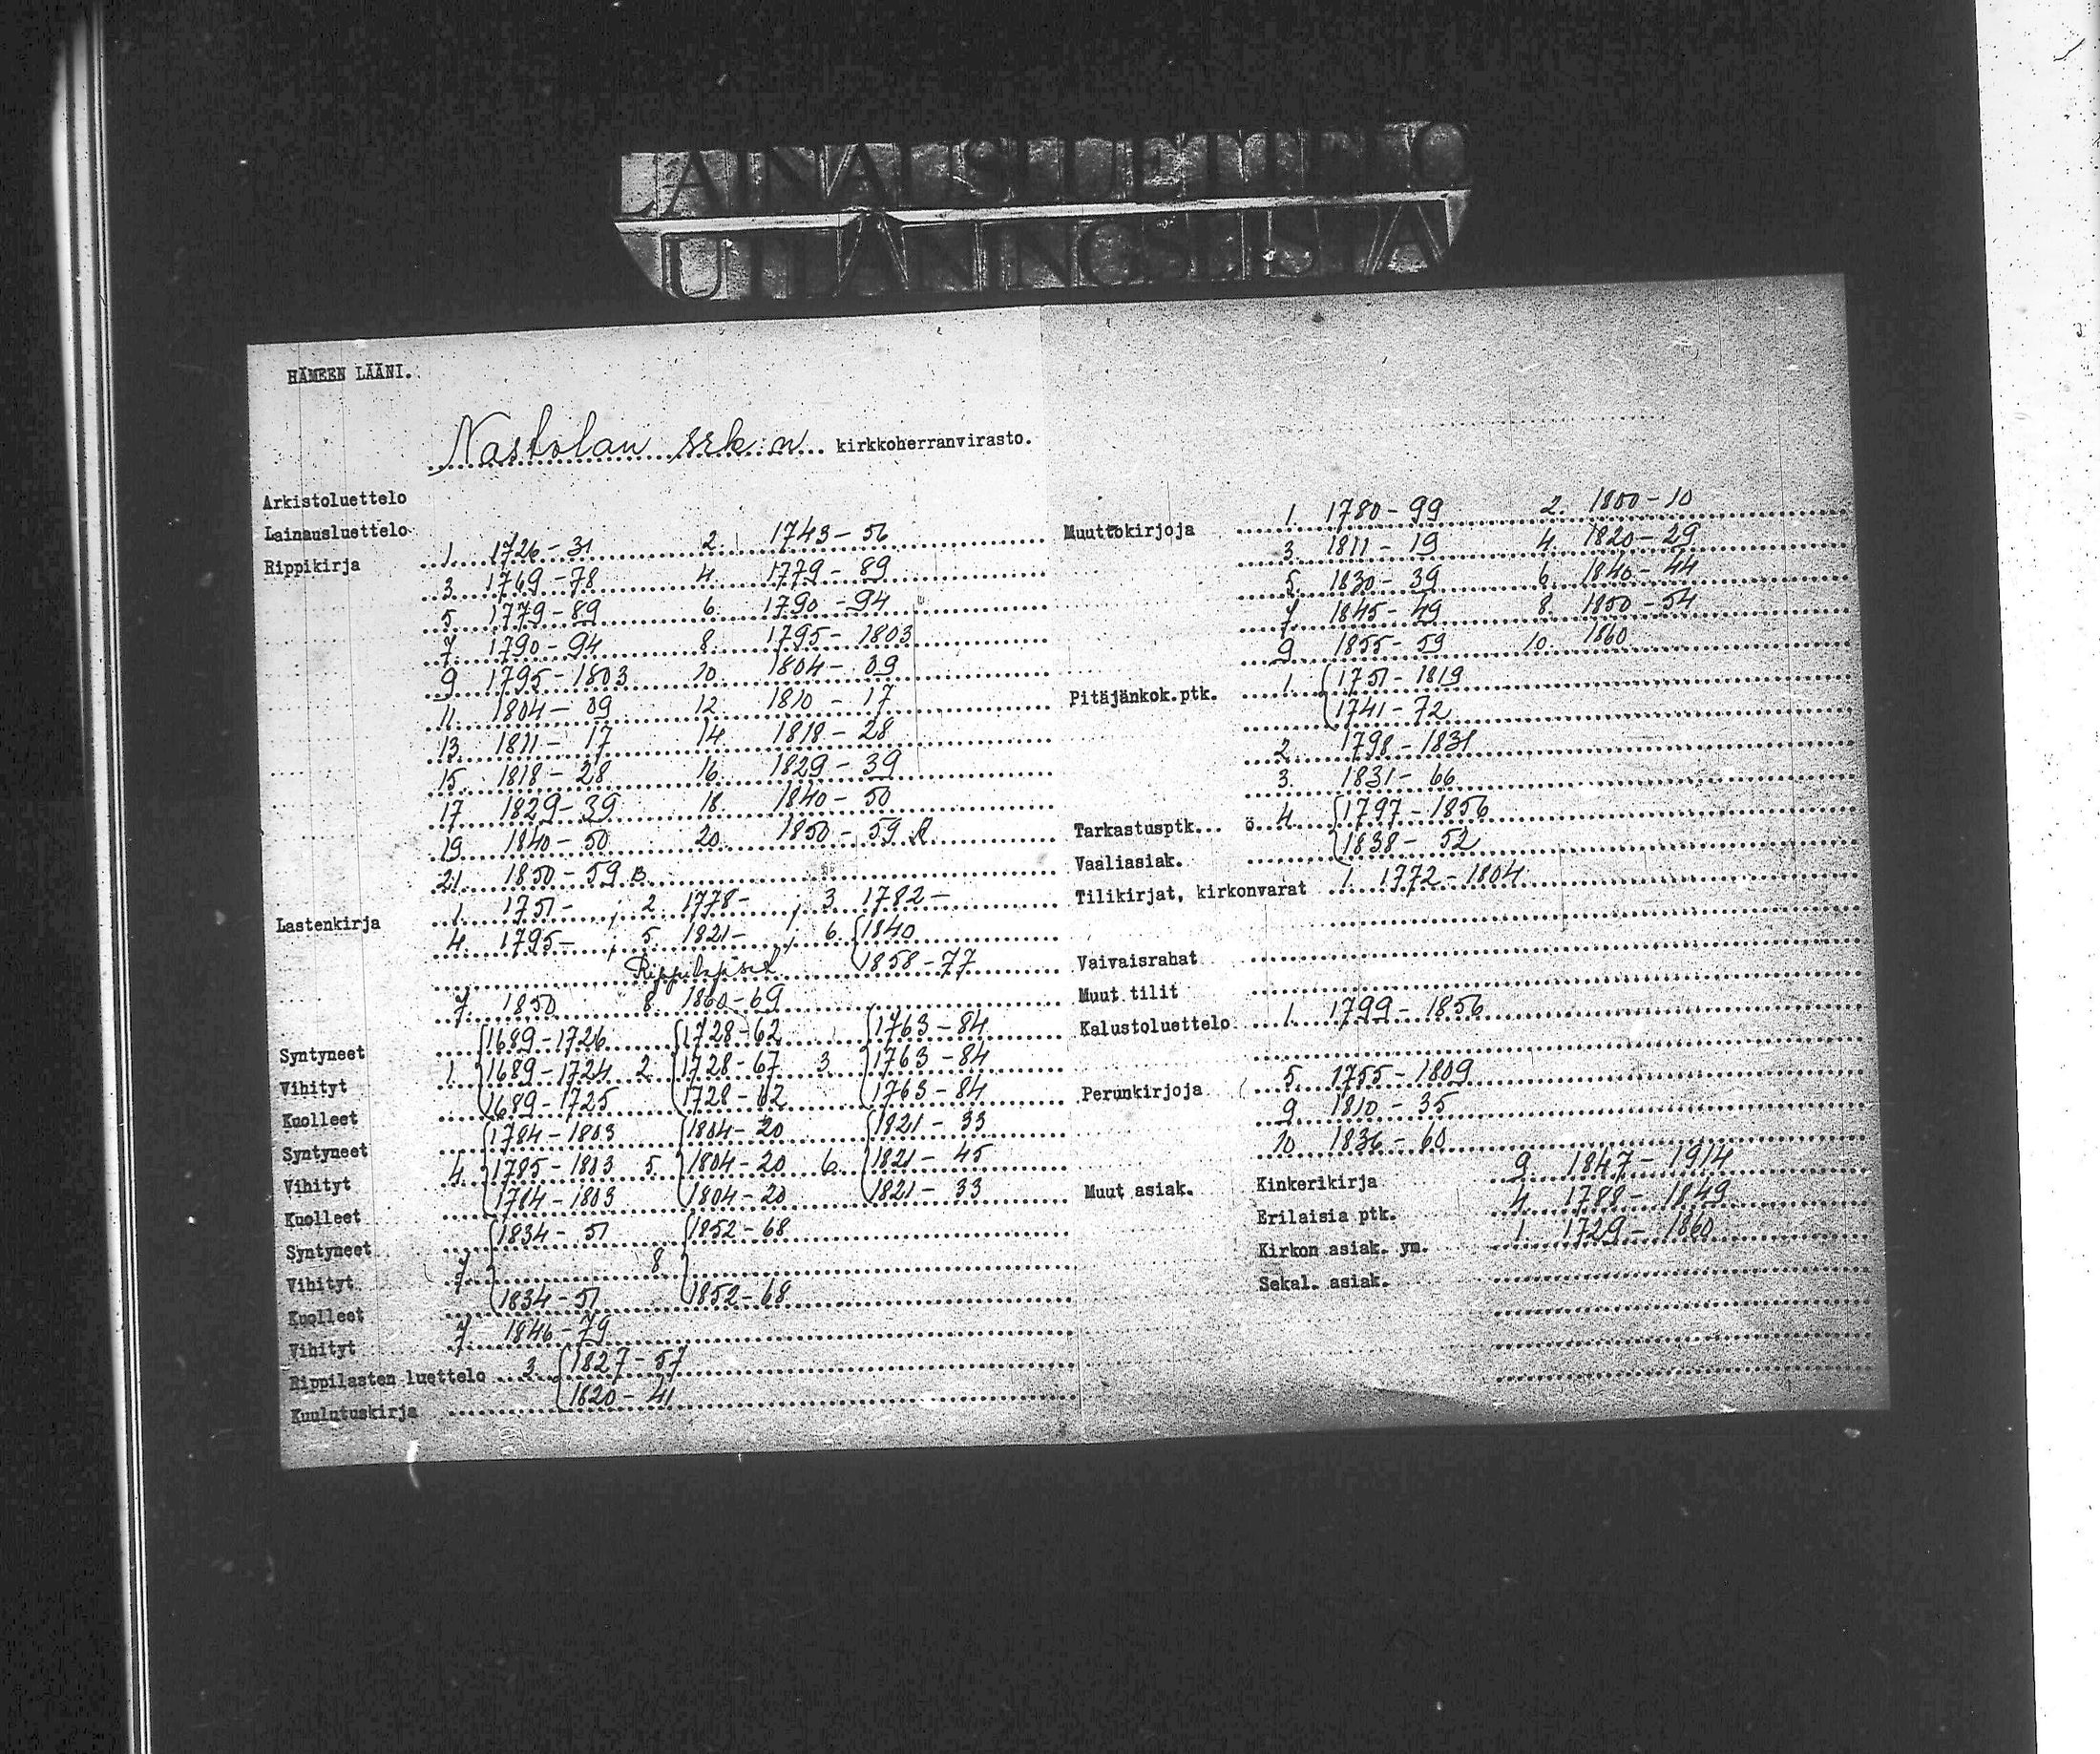 LAINAUSLUETTELO
UTLÅNINGSLISTA
HÄMEEN LÄÄNI.
Nastolan srk:n kirkkoherranvirasto.
Arkistoluettelo
Lainausluettelo
Rippikirja 1. 1726-31 2. 1743-56
3. 1769-78 4. 1779-89
5 1779-89 6. 1790-94
7. 1790-94 8. 1795-1803
9 1795-1803 10. 1804-09
11. 1804-09 12. 1810-17
13. 1811-17 14. 1818-28
15. 1818-28 16. 1829-39
17. 1829-39 18. 1840-50
19. 1840-50 20. 1850-59 A
21. 1850-59 B
Lastenkirja 1. 1751-, 2. 1778-, 3 1782-
4. 1795-, 5. 1821-, 6. 1840
1858-77
7. 1850 8. 1860-69
Syntyneet 1689-1726 1728-62 1763-84
Vihityt 1. 1689-1724 2. 1728-67 3. 1763-84
Kuolleet 1689-1725 1728-62 1763-84
Syntyneet 1784-1803 1804-20 1821-33
Vihityt 4. 1785-1803 5. 1804-20 6. 1821-45
Kuolleet 1784-1803 1804-20 1821-33
Syntyneet 1834-51 1852-68
Vihityt 7. 8.
Kuolleet 1834-51 1852-68
Vihityt 7. 1846-79
Rippilasten luettelo 3. 1827-57
Kuulutuskirja 1820-41
Muuttokirjoja 1. 1780-99 2. 1800-10
3. 1811-19 4. 1820-29
5. 1830-39 6. 1840-44
7. 1845-49 8. 1850-54
9 1855-59 10. 1860
Pitäjänkok.ptk. 1. 1751-1819
1741-72
2. 1798-1831
3. 1831-66
Tarkastusptk... ö 4. 1797-1856
Vaaliasiak. 1838-52
Tilikirjat, kirkonvarat 1. 1772-1804
Vaivaisrahat
Muut tilit
Kalustoluettelo 1. 1799-1856
Perunkirjoja 5. 1755-1809
9. 1810-35
10. 1836-60
Muut asiak. Kinkerikirja 9. 1847-1914
Erilaisia ptk. 4. 1788-1849
Kirkon asiak. ym. 1. 1729-1860
Sekal. asiak.